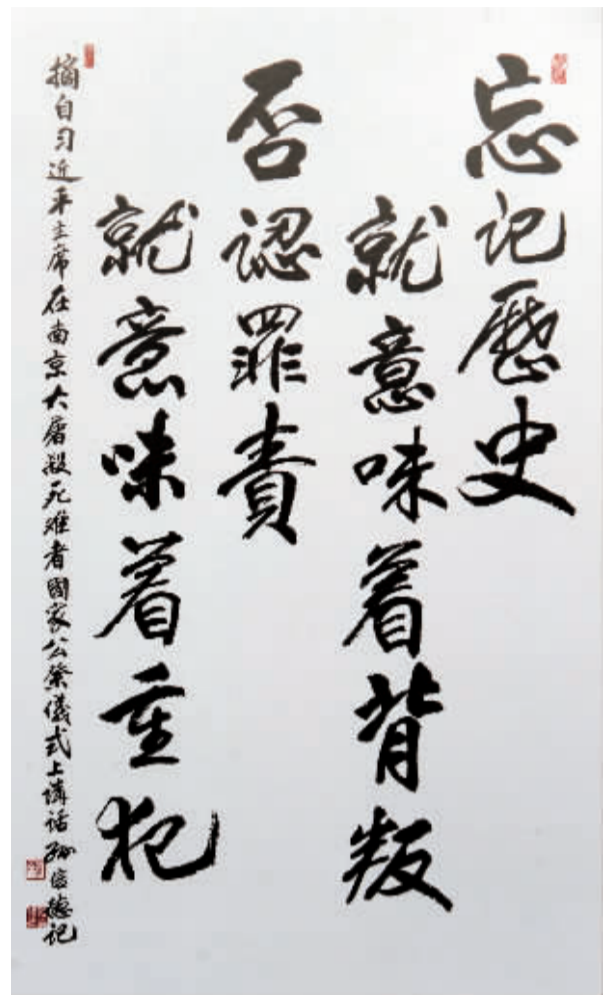 忘记歷史
就意味着背叛
否認罪責
就意味着重犯
摘自习近平主席在南京大屠殺死难者國家公祭儀式上講话 孙信德记